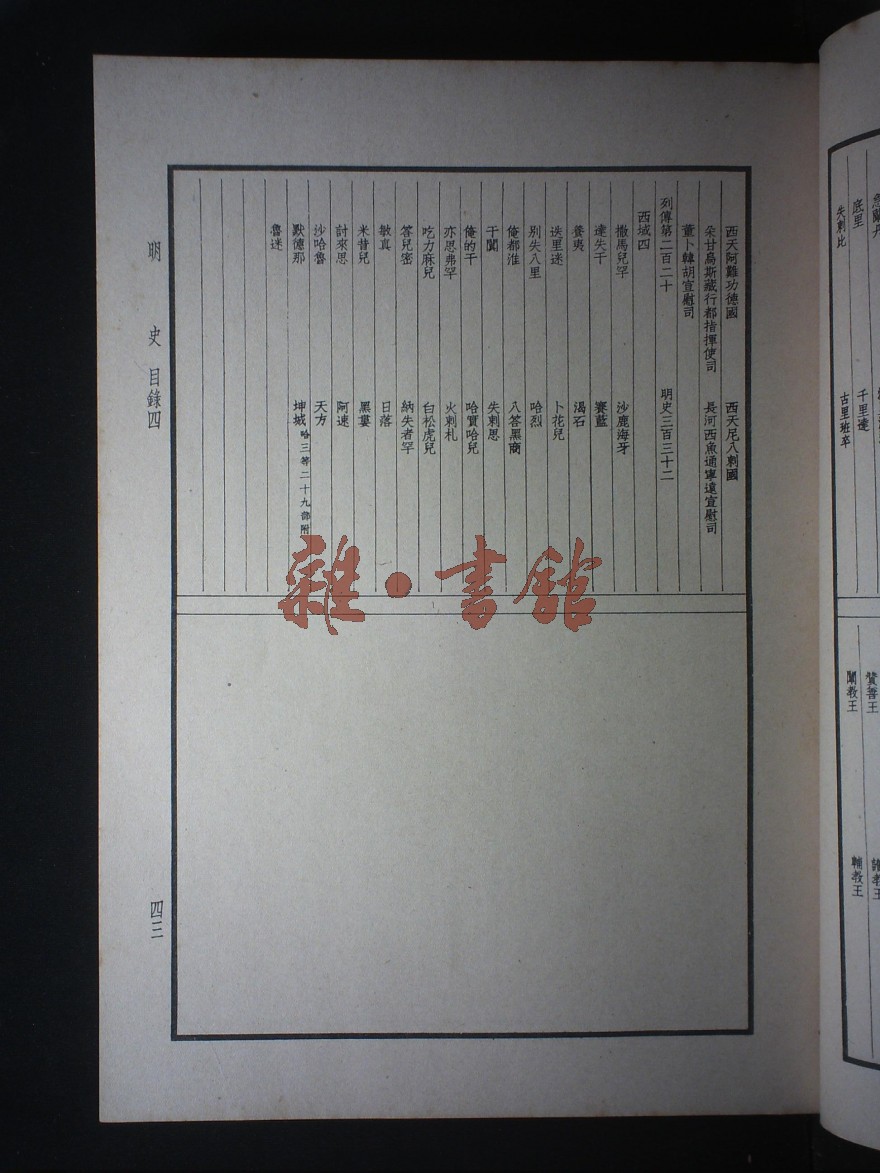 西天阿難功德國　西天尼八剌國
朵甘烏斯藏行都指揮使司　長河西魚通寧遠宣慰司
董卜韓胡宣慰司
列傳第二百二十　明史三百三十二
西域四
撒馬兒罕　沙鹿海牙
達失干　賽藍
養夷　渴石
迭里迷　卜花兒
別失八里　哈烈
俺都淮　八答黑商
于闐　失剌思
俺的干　哈實哈兒
亦思弗罕　火剌札
吃力麻兒　白松虎兒
答兒密　納失者罕
敏真　日落
米昔兒　黑婁
討來思　阿速
沙哈魯　天方
默德那　坤城 哈三等二十九部附
魯迷
明史 目錄四
四三
底里　千里達
失剌比　古里班卒
贊善王
闡教王　輔教王
雜·書館